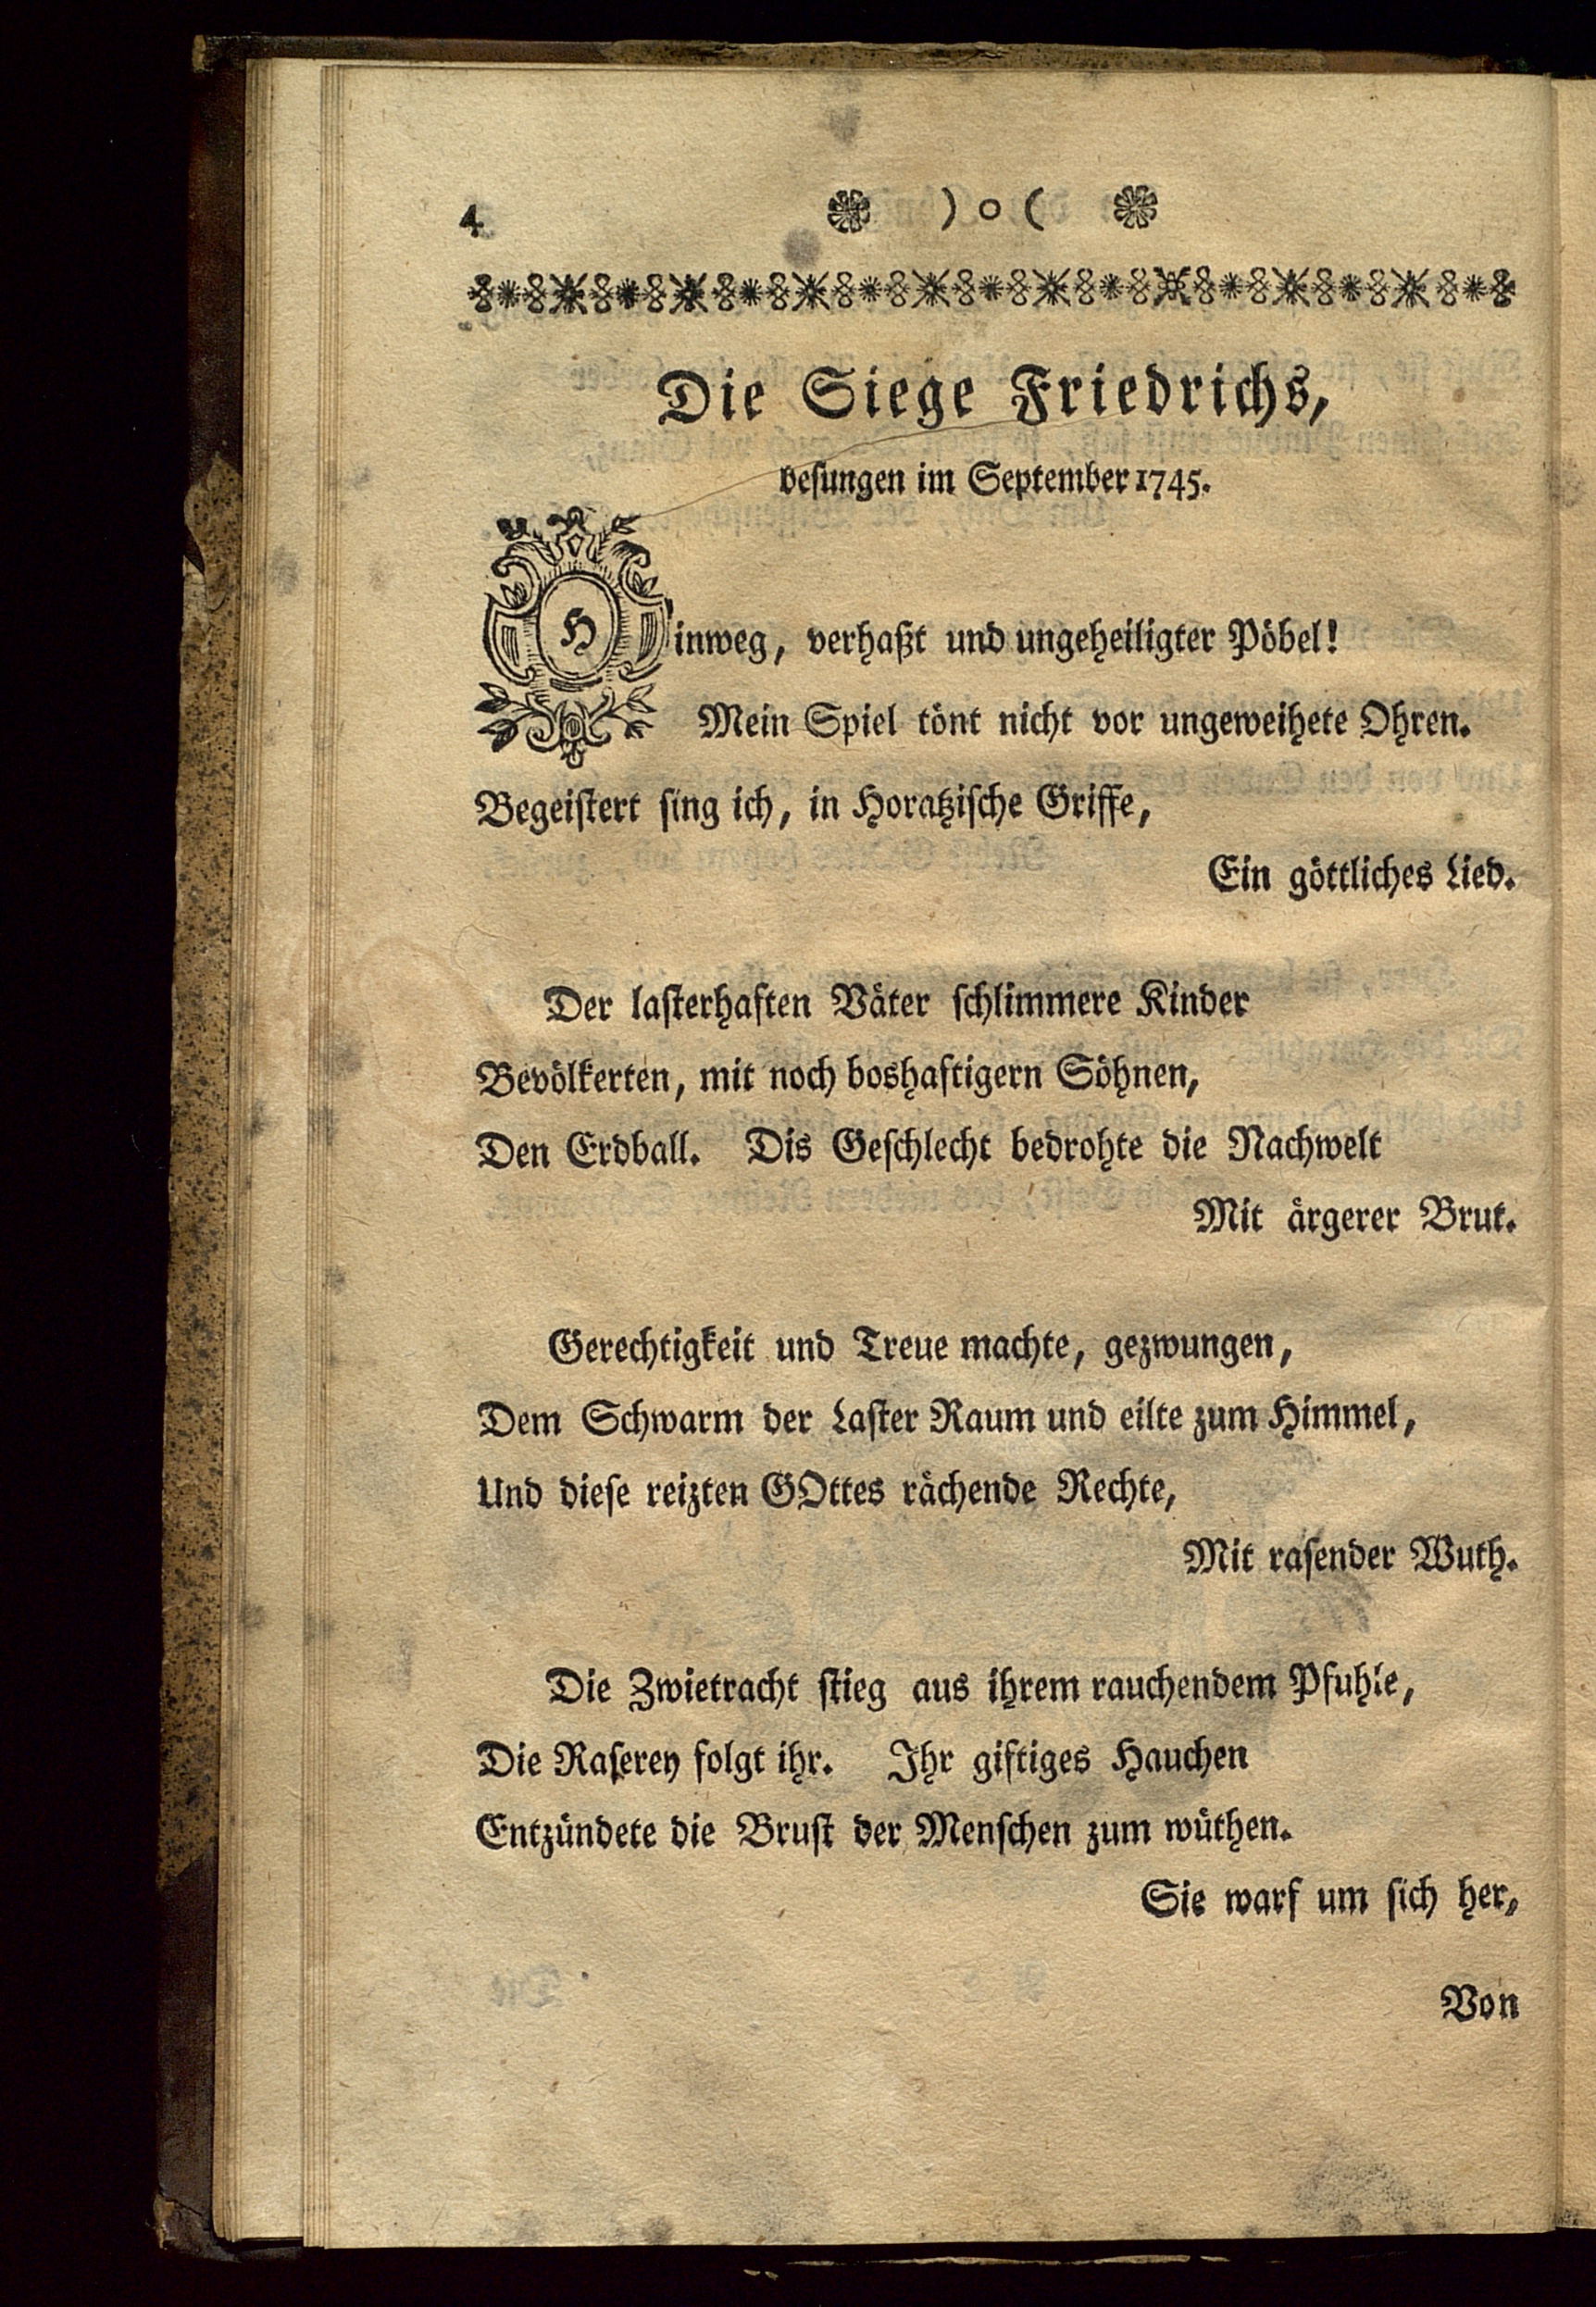 4 ) o (
Die Siege Friedrichs,
besungen im September 1745.
Hinweg, verhaßt und ungeheiligter Pöbel!
Mein Spiel tönt nicht vor ungeweihete Ohren.
Begeistert sing ich, in Horatzische Griffe,
Ein göttliches Lied.
Der lasterhaften Väter schlimmere Kinder
Bevölkerten, mit noch boshaftigern Söhnen,
Den Erdball. Dis Geschlecht bedrohte die Nachwelt
Mit ärgerer Brut.
Gerechtigkeit und Treue machte, gezwungen,
Dem Schwarm der Laster Raum und eilte zum Himmel,
Und diese reizten GOttes rächende Rechte,
Mit rasender Wuth.
Die Zwietracht stieg aus ihrem rauchendem Pfuhle,
Die Raserey folgt ihr. Ihr giftiges Hauchen
Entzündete die Brust der Menschen zum wüthen.
Sie warf um sich her,
Von